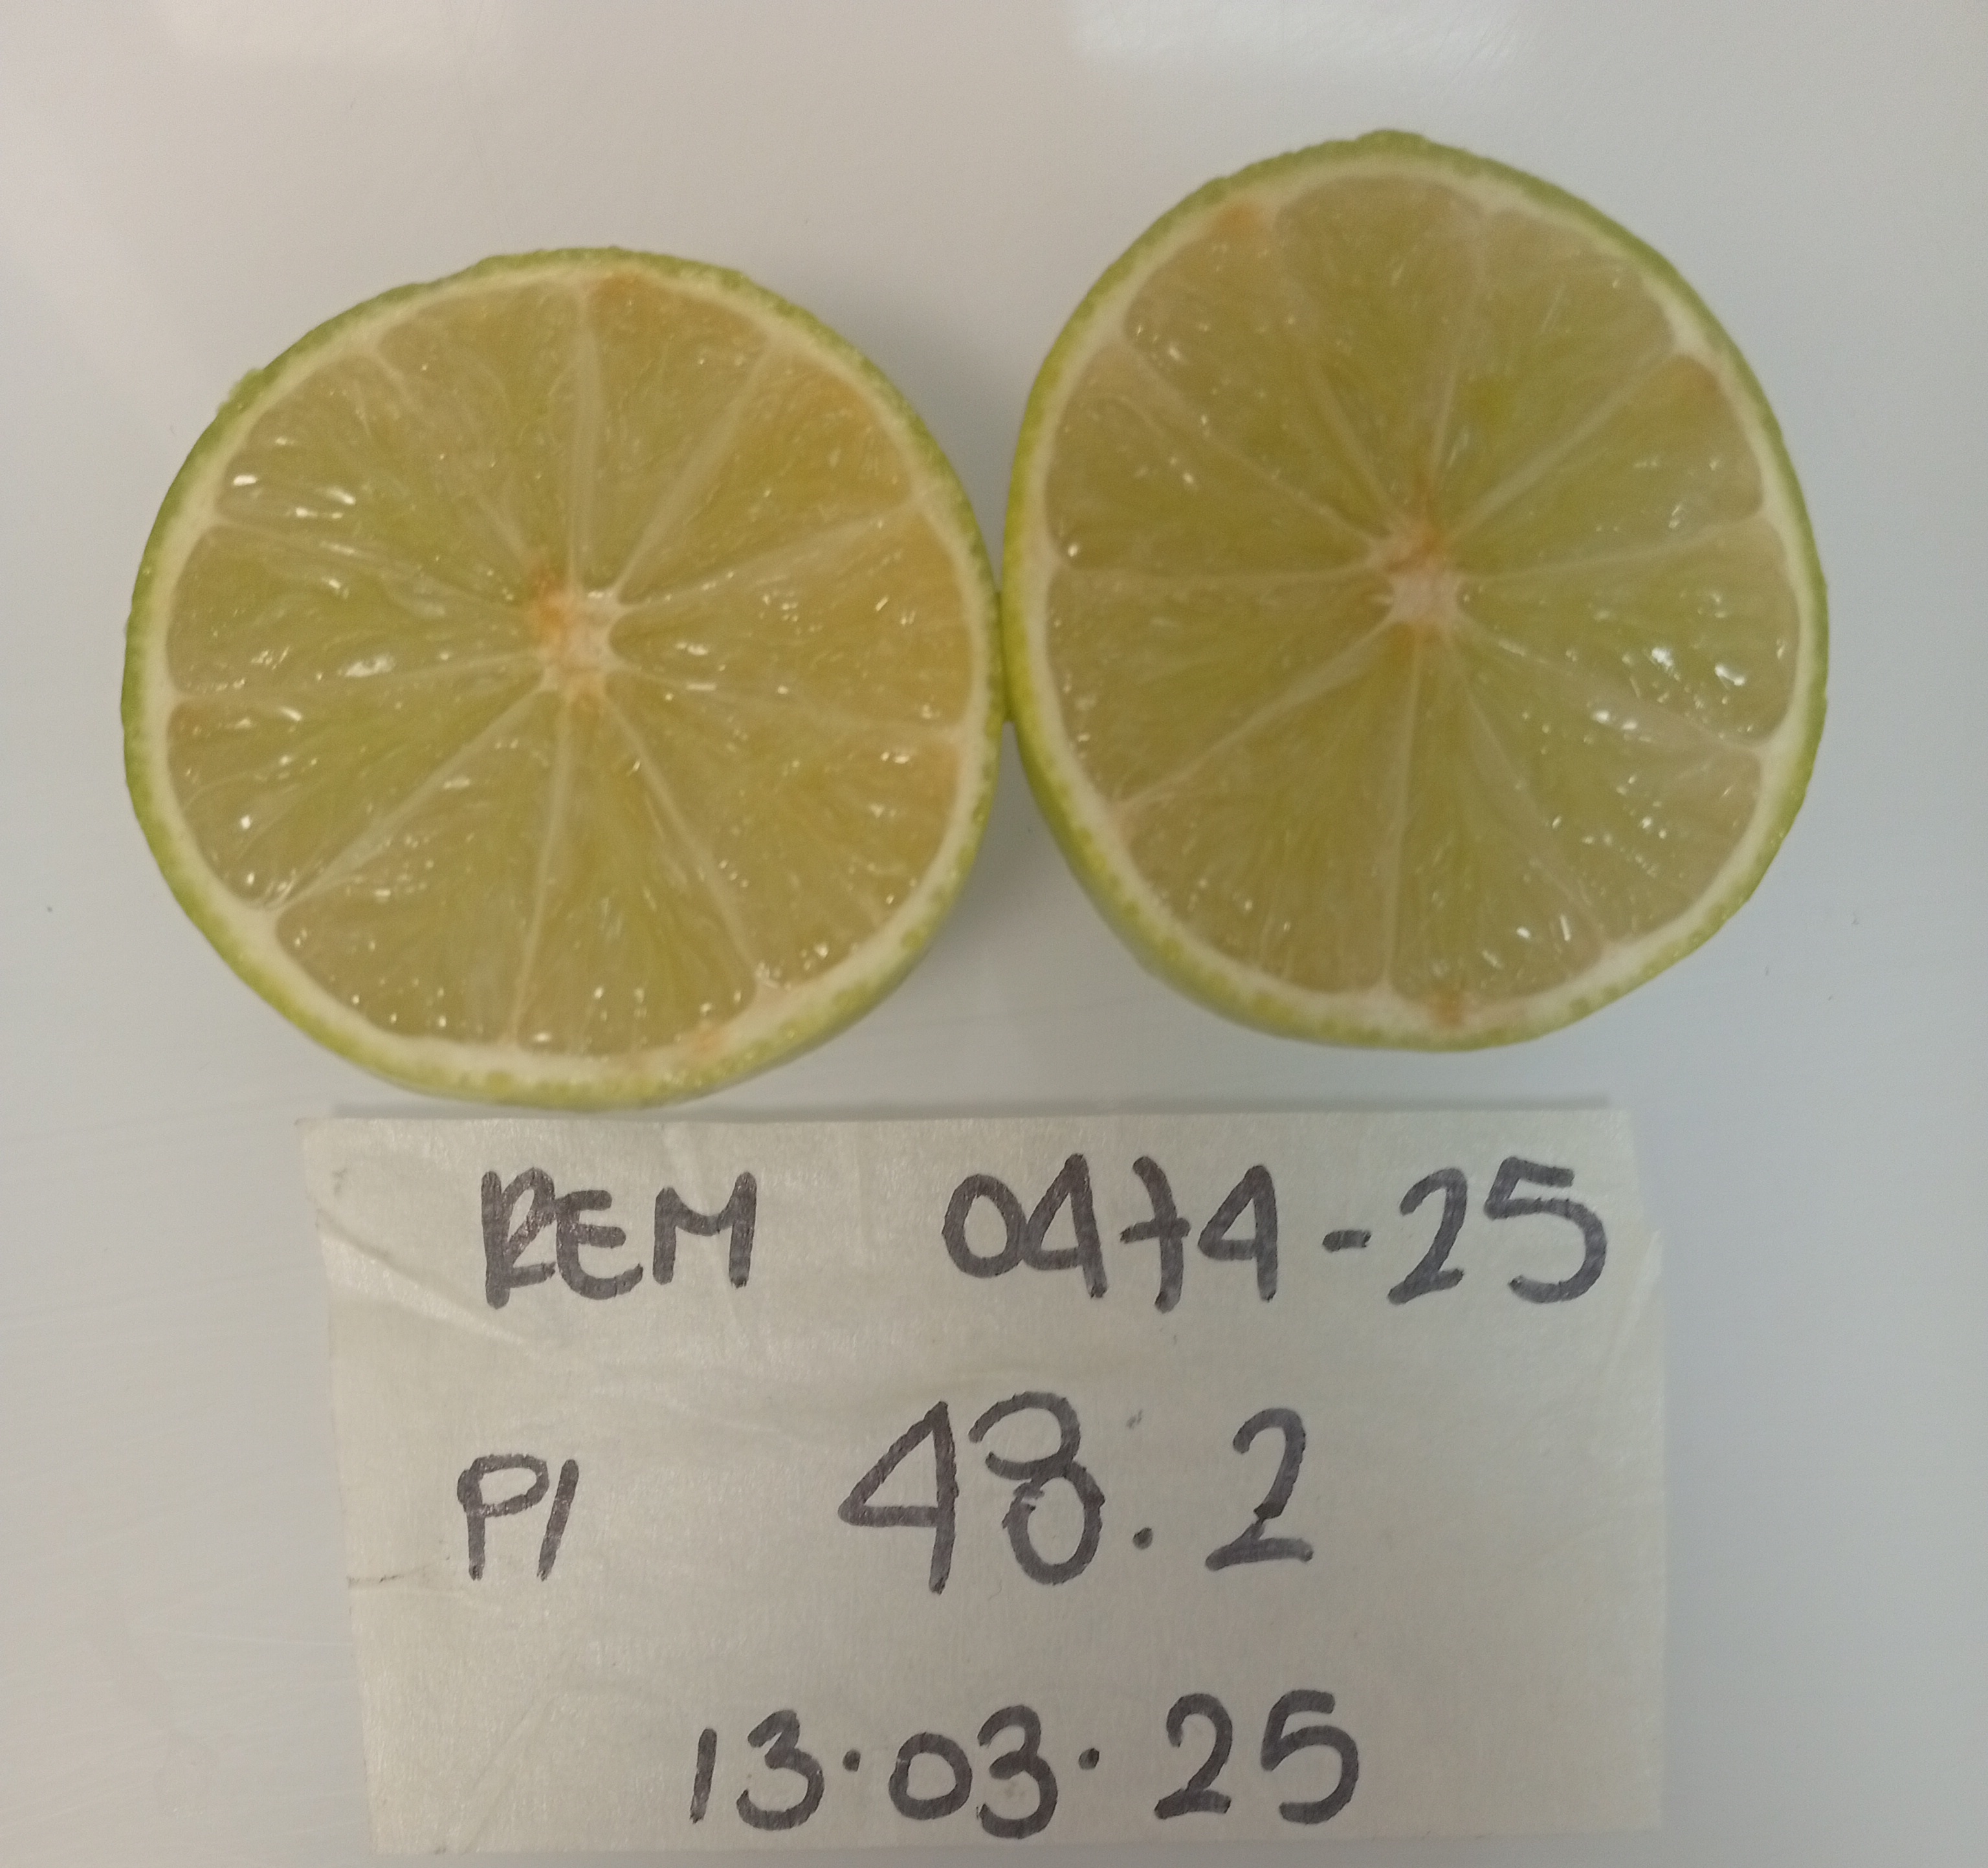 REM 0474-25
PI 48.2
13.03.25